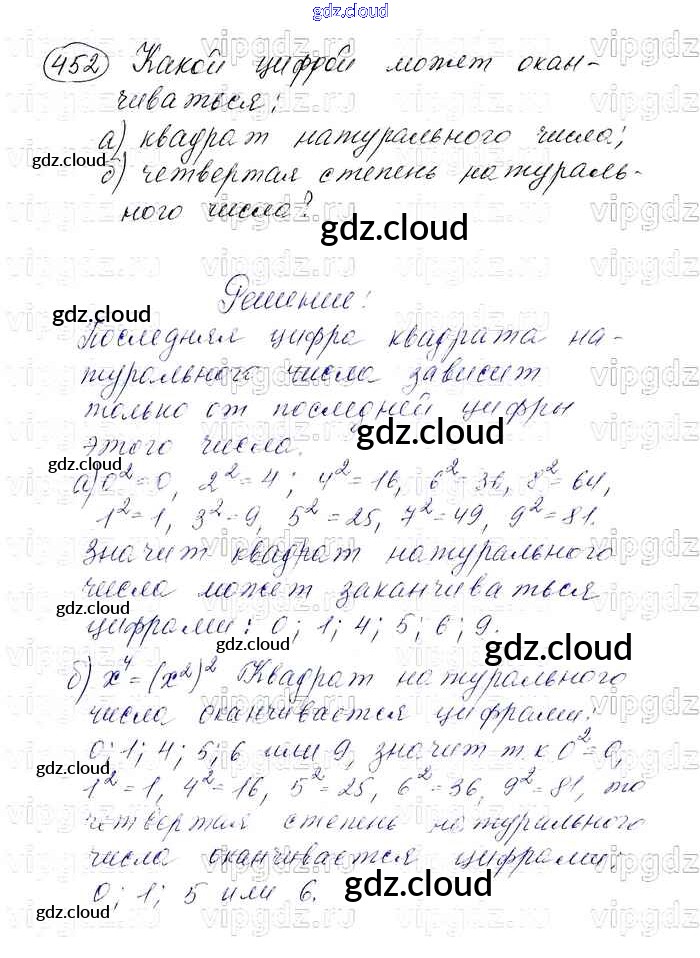 gdz.cloud
452 Какой цифрой может окан-
чиваться:
а) квадрат натурального числа;
gdz.cloud
б) четвертая степень натураль-
ного числа?
gdz.cloud
Решение:
gdz.cloud
Последняя цифра квадрата на-
турального числа зависит
только от последней цифры
gdz.cloud
этого числа.
gdz.cloud
а) 0²=0, 2²=4; 4²=16, 6²=36, 8²=64,
1²=1, 3²=9, 5²=25, 7²=49, 9²=81.
Значит квадрат натурального
числа может заканчиваться
gdz.cloud
цифрами: 0; 1; 4; 5; 6; 9.
gdz.cloud
б) x⁴=(x²)² Квадрат натурального
числа оканчивается цифрами:
0; 1; 4; 5; 6 или 9, значит т.к 0²=0,
gdz.cloud
1²=1, 4²=16, 5²=25, 6²=36, 9²=81, то
четвертая степень натурального
числа оканчивается цифрами:
0; 1; 5 или 6.
gdz.cloud
gdz.cloud